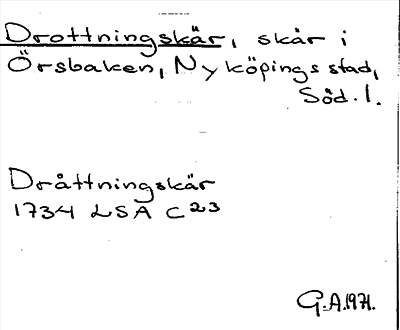 Drottningskär, skär i
Örsbaken, Nyköpings stad,
Söd. l.
Dråttningskär
1734 LSA C23
G.A.1971.